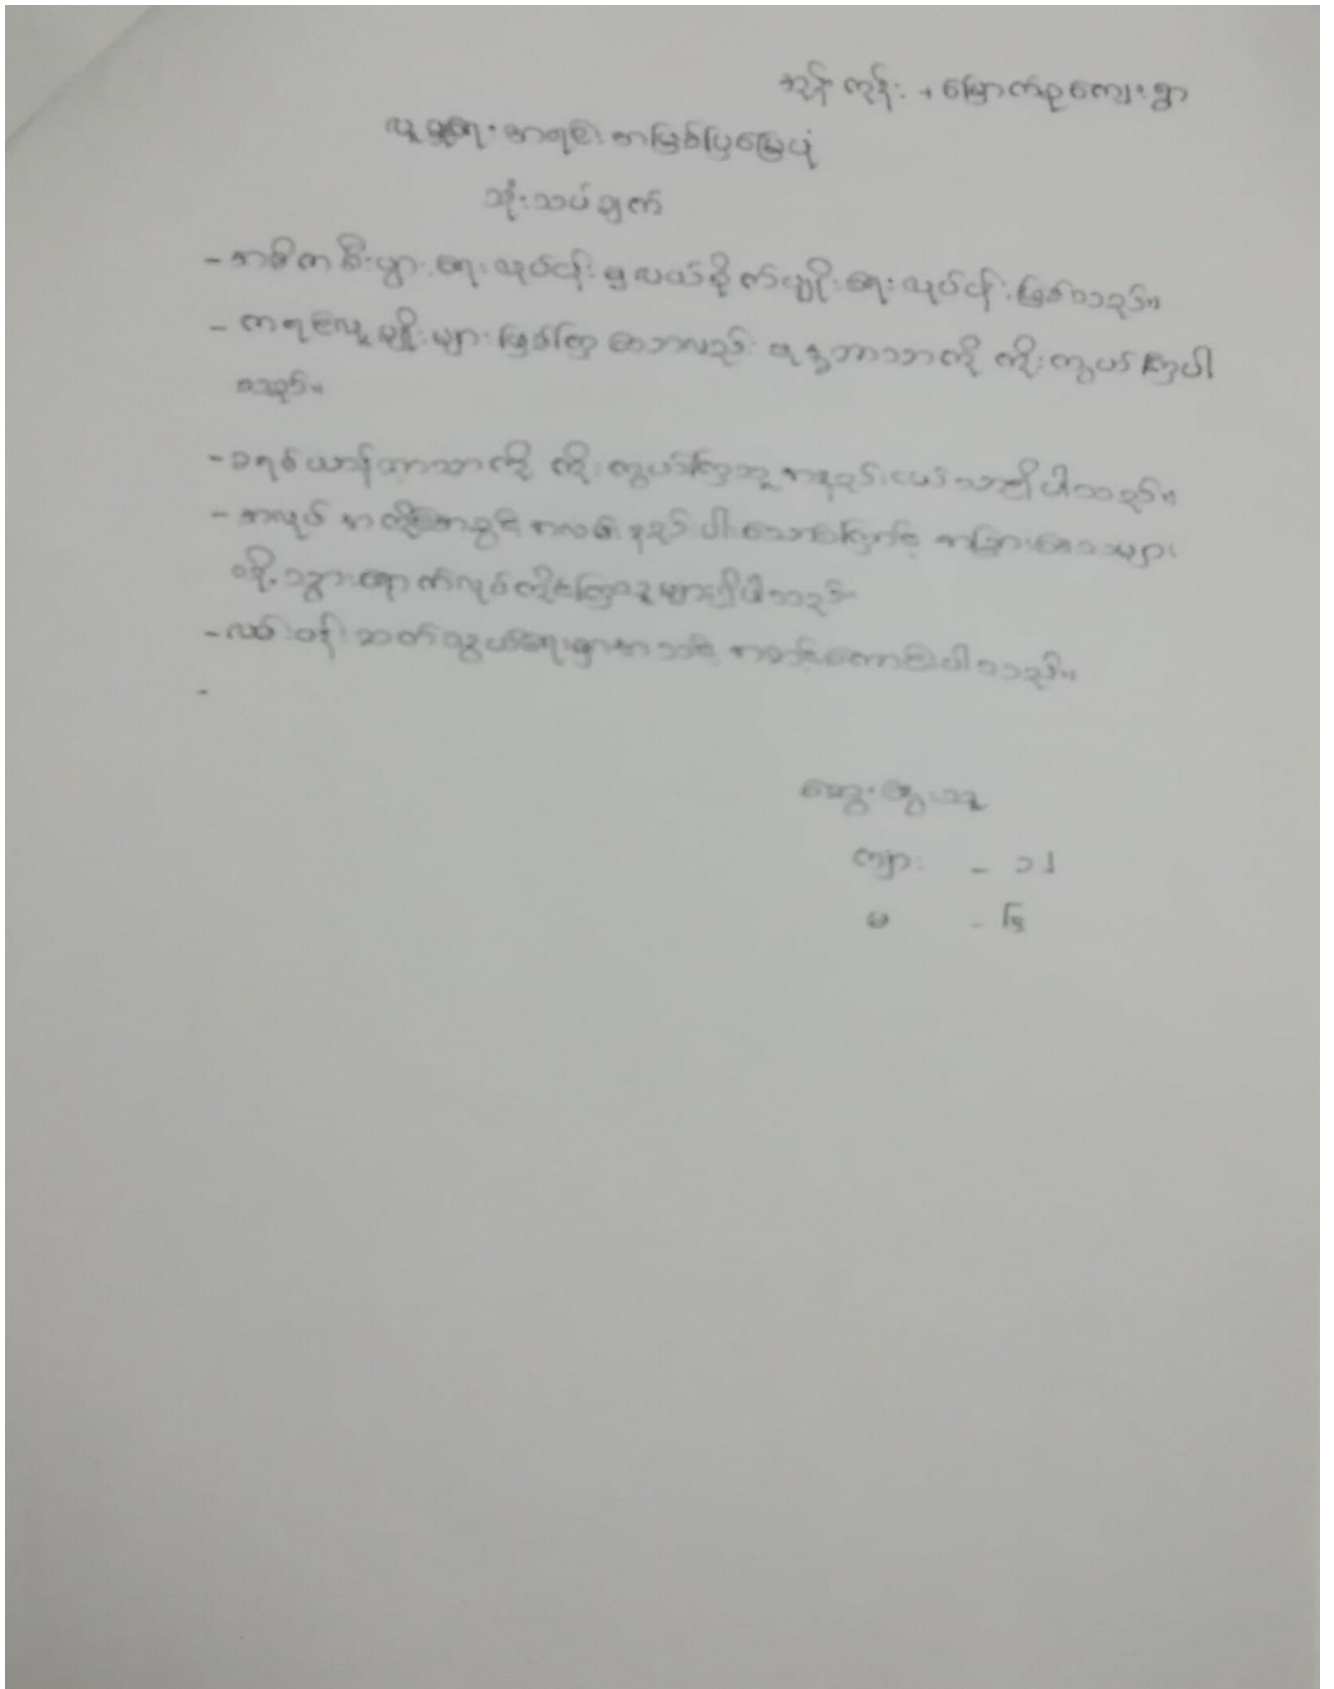 ကုန်း + မြောက်စုကျေးရွာ
လူမှုရေးအရင်းအမြစ်ပြမြေပုံ
သုံးသပ်ချက်
- အဓိကစီးပွားရေးလုပ်ငန်းမှ လယ်စိုက်ပျိုးရေးလုပ်ငန်းဖြစ်သည်။
- ကရင်လူမျိုးများဖြစ်ကြသော်လည်း ဗုဒ္ဓဘာသာကို ကိုးကွယ်ကြပါ
သည်။
- ခရစ်ယာန်ဘာသာကို ကိုးကွယ်ကြသူ အနည်းငယ်သာရှိပါသည်။
- အလုပ်အကိုင်အခွင့်အလမ်းနည်းပါးသောကြောင့် အခြားဒေသများ
သို့ သွားရောက်လုပ်ကိုင်ကြသူများရှိပါသည်။
- လမ်းပန်းဆက်သွယ်ရေးမှာအသင့်အတင့်ကောင်းပါသည်။
-
ဆွေးနွေးသူ
ကျား - ၁၂
မ - ၆